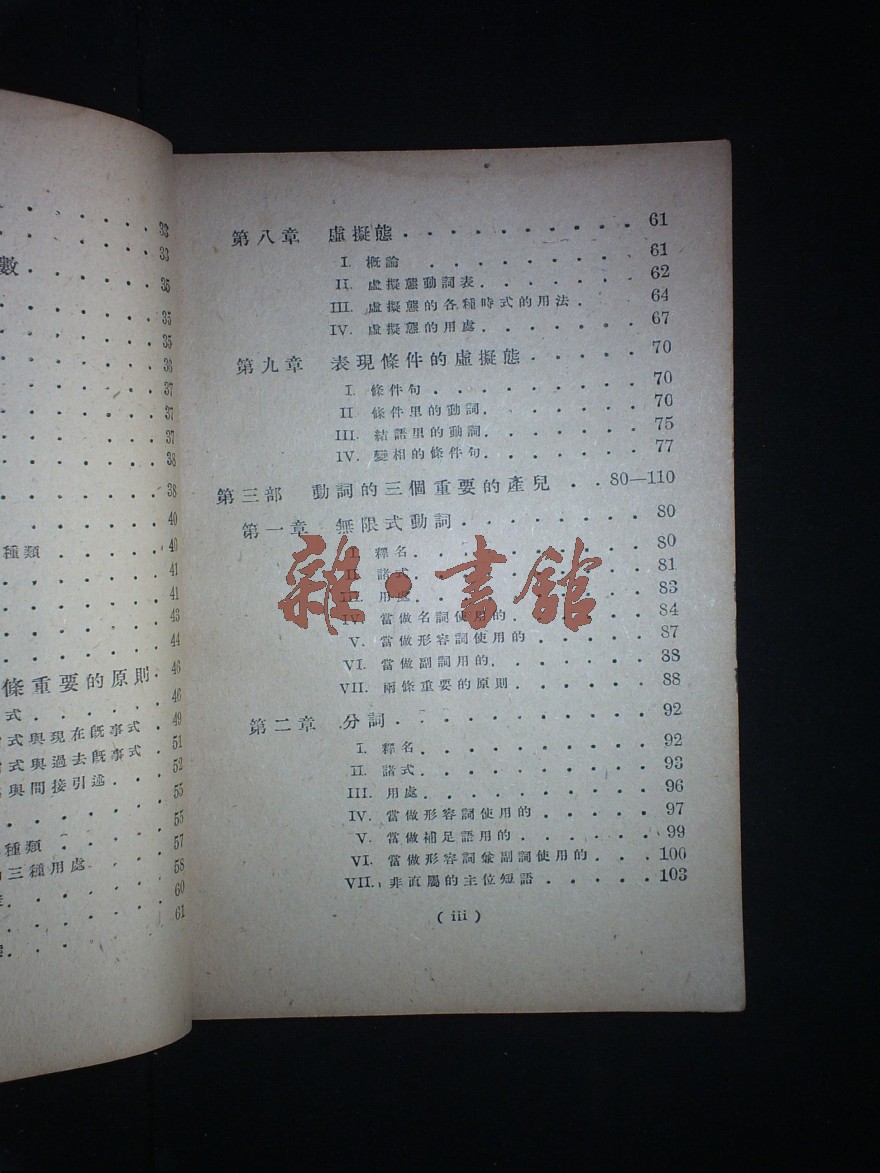 33
33
數 35
35
35
36
37
37
37
38
38
40
種類 40
41
41
43
44
條重要的原則 46
式 46
式與現在旣事式 49
式與過去旣事式 51
與間接引述 52
53
55
種類 57
三種用處 58
60
61
第八章 虛擬態 61
I. 槪論 61
II. 虛擬態動詞表 62
III. 虛擬態的各種時式的用法 64
IV. 虛擬態的用處 67
第九章 表現條件的虛擬態 70
I. 條件句 70
II 條件里的動詞 70
III. 結語里的動詞 75
IV. 變相的條件句 77
第三部 動詞的三個重要的產兒 80—110
第一章 無限式動詞 80
I. 釋名 80
II. 諸式 81
III. 用處 83
IV. 當做名詞使用的 84
V. 當做形容詞使用的 87
VI. 當做副詞用的 88
VII. 兩條重要的原則 88
第二章 分詞 92
I. 釋名 92
II. 諸式 93
III. 用處 96
IV. 當做形容詞使用的 97
V. 當做補足語用的 99
VI. 當做形容詞兼副詞使用的 100
VII. 非直屬的主位短語 103
( iii )
雜·書館